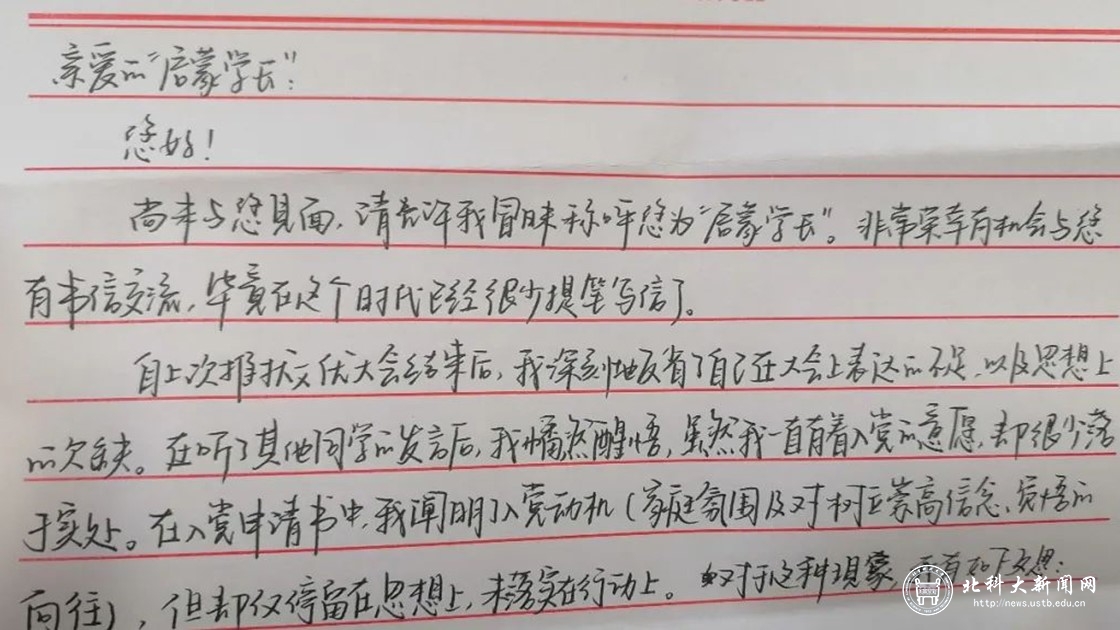 亲爱的“启蒙学长”:
您好!
尚未与您见面,请允许我冒昧称呼您为“启蒙学长”。非常荣幸有机会与您
有书信交流,毕竟在这个时代已经很少提笔写信了。
自上次推优大会结束后,我深刻地反省了自己在大会上表达的不足,以及思想上
的欠缺。在听了其他同学的发言后,我幡然醒悟,虽然我一直有着入党的意愿,却很少落
于实处。在入党申请书中,我阐明了入党动机(家庭氛围及对树立崇高信念、觉悟的
向往),但却仅停留在思想上,未落实在行动上。对于这种现象,有如下反思:
北科大新闻网
http://news.ustb.edu.cn